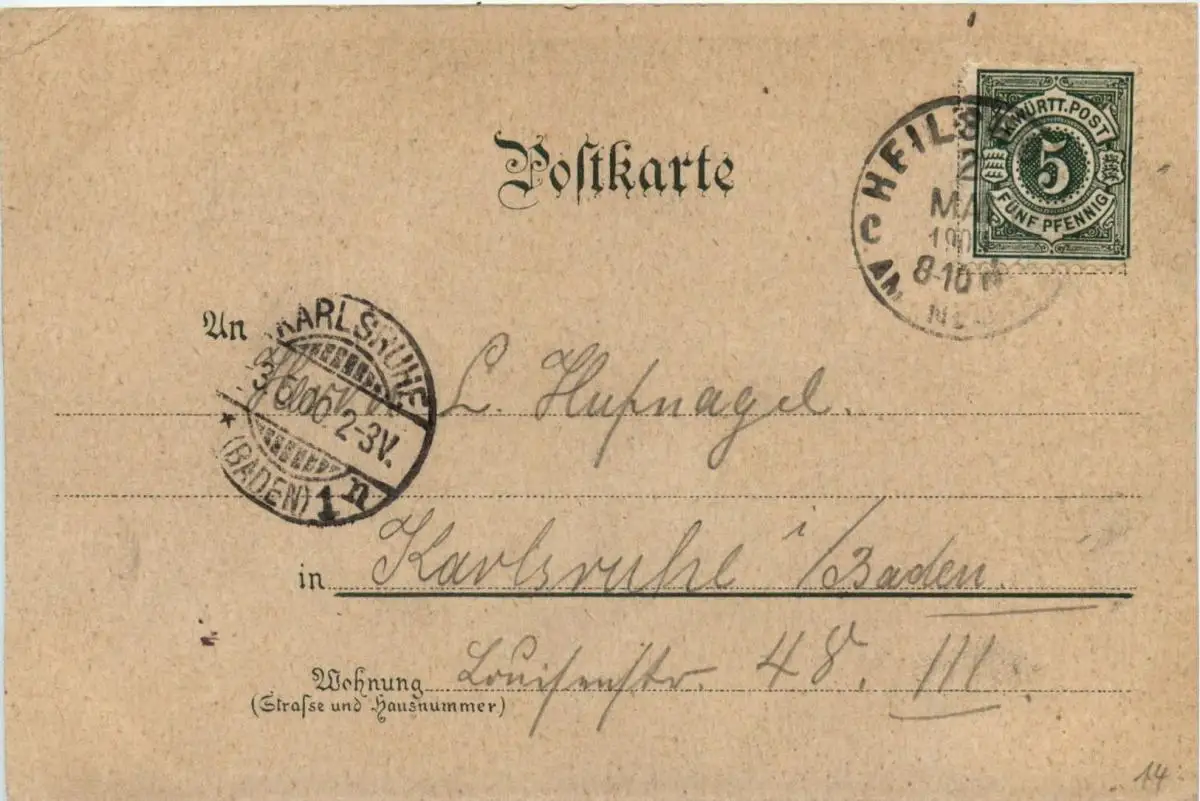 Postkarte
K. WÜRTT. POST
5
FÜNF PFENNIG
HEILB
2
MA
190
8-10 N
C AM NE
An
Herrn L. Hufnagel.
KARLSRUHE
3.5.00. 2-3V.
* (BADEN) 1n
in Karlsruhe i/Baden.
Wohnung Louisenstr. 48. III
(Straſse und Hausnummer)
14